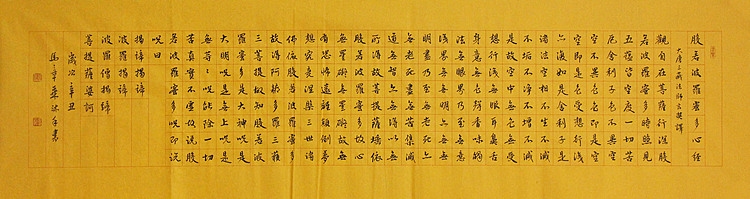 般若波羅蜜多心經
大唐三藏法師玄奘譯
觀自在菩薩行深般
若波羅蜜多時照見
五蘊皆空度一切苦
厄舍利子色不異空
空不異色色即是空
空即是色受想行識
亦復如是舍利子是
諸法空相不生不滅
不垢不淨不增不減
是故空中無色無受
想行識無眼耳鼻舌
身意無色聲香味觸
法無眼界乃至無意
識界無無明亦無無
明盡乃至無老死亦
無老死盡無苦集滅
道無智亦無得以無
所得故菩提薩埵依
般若波羅蜜多故心
無罣礙無罣礙故無
有恐怖遠離顛倒夢
想究竟涅槃三世諸
佛依般若波羅蜜多
故得阿耨多羅三藐
三菩提故知般若波
羅蜜多是大神呪是
大明呪是無上呪是
無等々呪能除一切
苦真實不虛故說般
若波羅蜜多呪即說
呪曰
揭諦揭諦
波羅揭諦
波羅僧揭諦
菩提薩婆訶
歲次辛丑